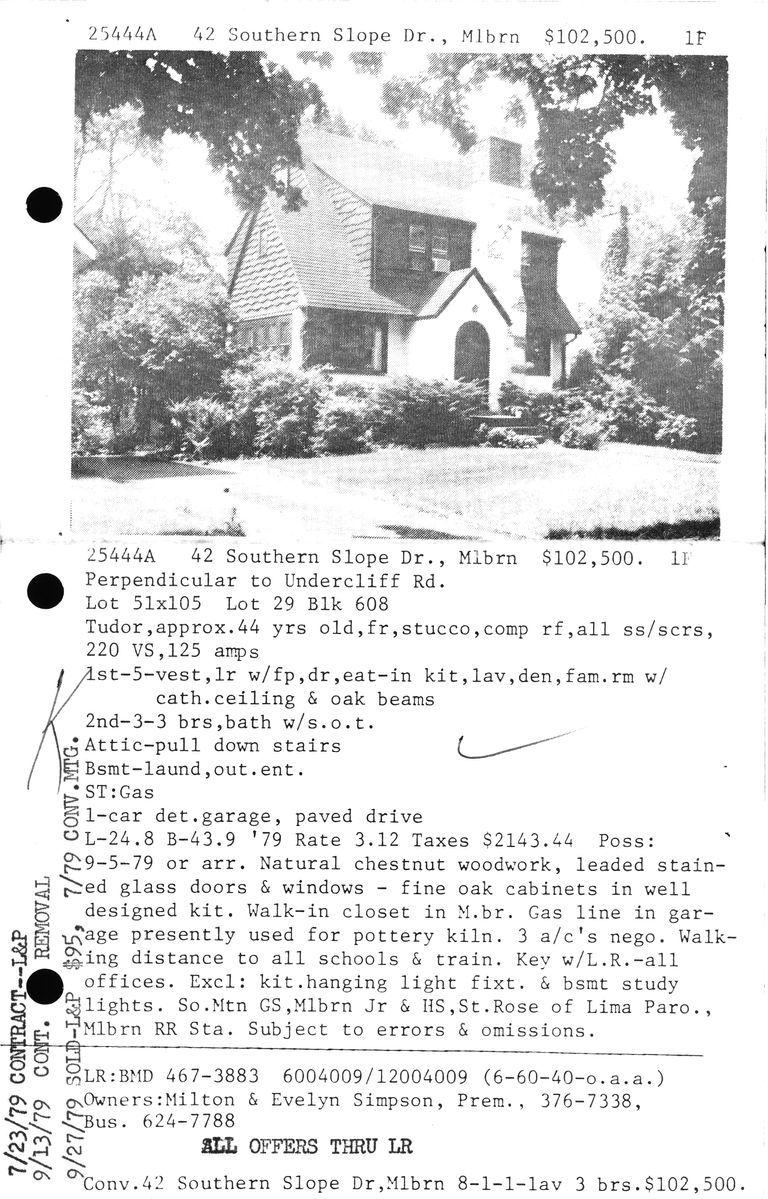 25444A 42 Southern Slope Dr., Mlbrn $102,500. 1F
25444A 42 Southern Slope Dr., Mlbrn $102,500. 1F
Perpendicular to Undercliff Rd.
Lot 51x105 Lot 29 Blk 608
Tudor,approx.44 yrs old,fr,stucco,comp rf,all ss/scrs,
220 VS,125 amps
1st-5-vest,lr w/fp,dr,eat-in kit,lav,den,fam.rm w/
cath.ceiling & oak beams
2nd-3-3 brs,bath w/s.o.t.
Attic-pull down stairs
Bsmt-laund,out.ent.
ST:Gas
1-car det.garage, paved drive
L-24.8 B-43.9 '79 Rate 3.12 Taxes $2143.44 Poss:
9-5-79 or arr. Natural chestnut woodwork, leaded stain-
ed glass doors & windows - fine oak cabinets in well
designed kit. Walk-in closet in M.br. Gas line in gar-
age presently used for pottery kiln. 3 a/c's nego. Walk-
ing distance to all schools & train. Key w/L.R.-all
offices. Excl: kit.hanging light fixt. & bsmt study
lights. So.Mtn GS,Mlbrn Jr & HS,St.Rose of Lima Paro.,
Mlbrn RR Sta. Subject to errors & omissions.
LR:BMD 467-3883 6004009/12004009 (6-60-40-o.a.a.)
Owners:Milton & Evelyn Simpson, Prem., 376-7338,
Bus. 624-7788
ALL OFFERS THRU LR
Conv.42 Southern Slope Dr,Mlbrn 8-1-1-lav 3 brs.$102,500.
7/23/79 CONTRACT--L&P
9/13/79 CONT. REMOVAL
9/27/79 SOLD-L&P $95, 7/79 CONV.MTG.